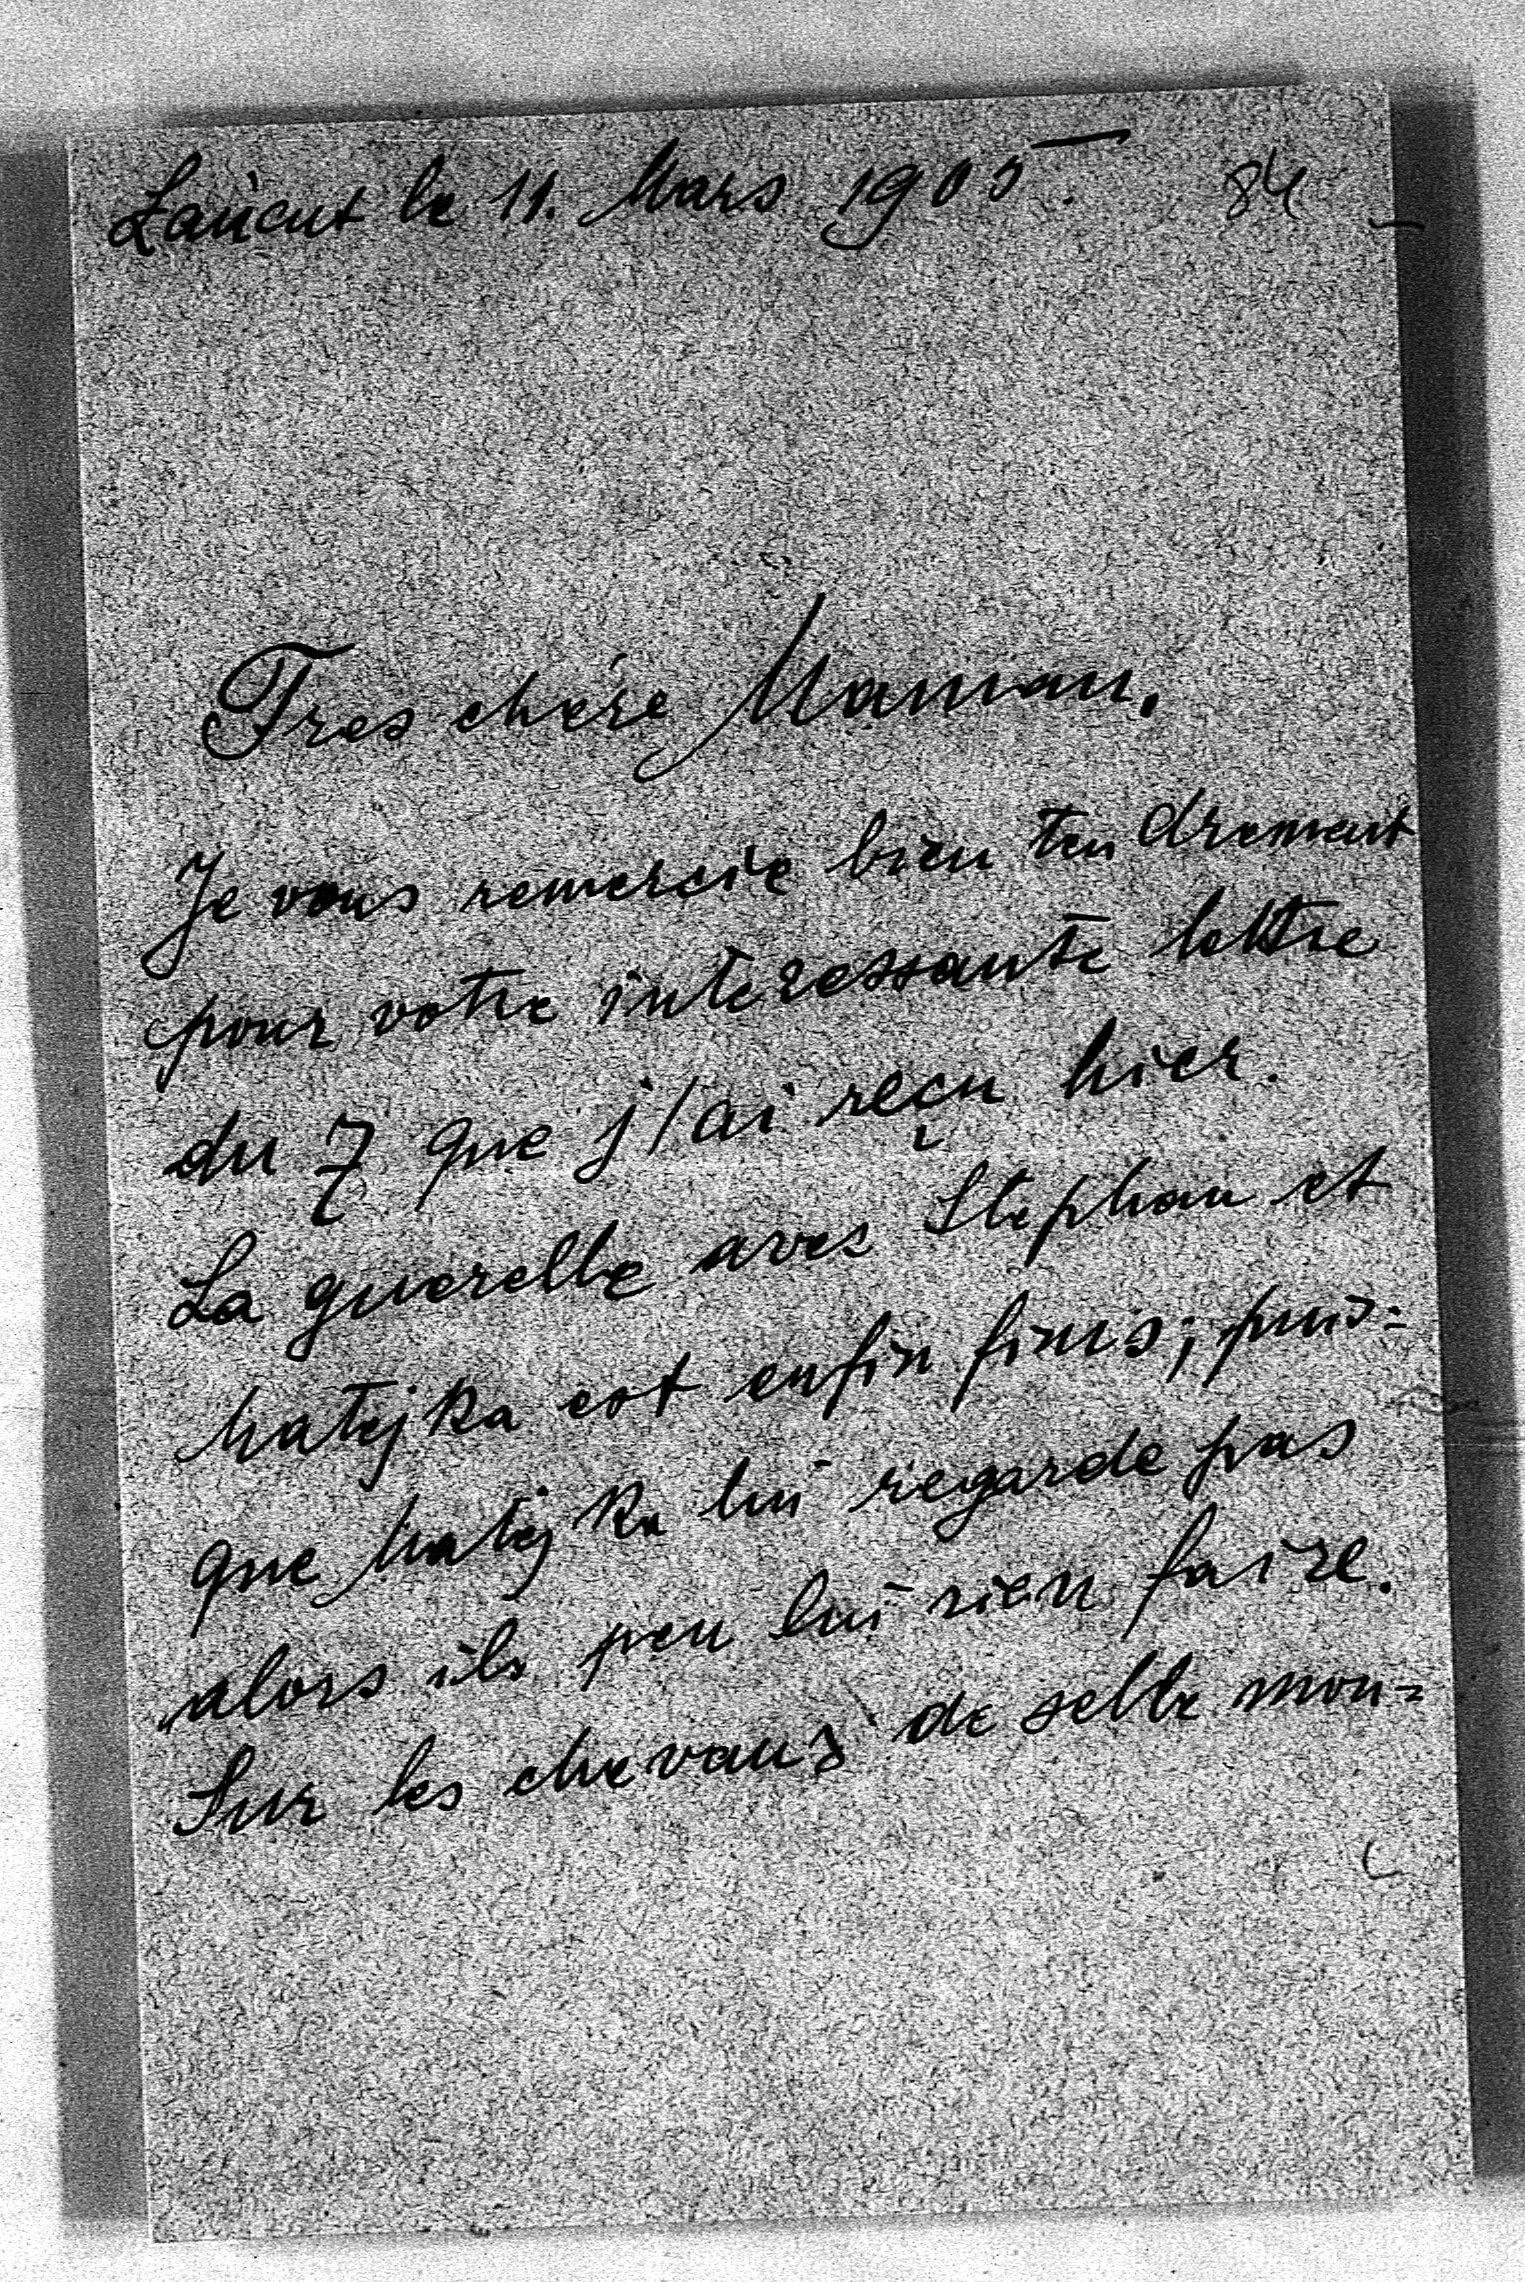 Łańcut le 11. Mars 1905. 84
Tres chére Maman.
Je vous remercie bien tendrement
pour votre interessante lettre
du 7 que j'ai reçu hier.
La querelle aves Stephan et
Matejka est enfin finis; puis=
que Matejka lui regarde pas
alors ils peu lui rien faire.
Sur les chevaux de selle mon=